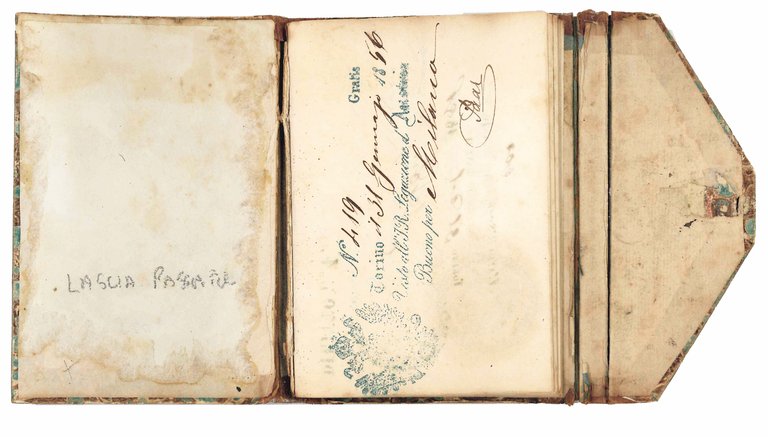 LASCIA PASSARE
Gratis
N. 419
Torino il 31 Gennajo 1856
Visto all'I.R. Legazione d'Austria
Buono per Milano